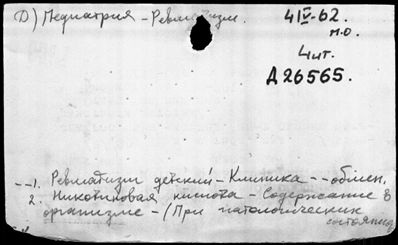 D) Педиатрия - Ревматизм.
4 IV-62.
м.о.
4 ит.
Д 26565.
--1. Ревматизм детский - Клиника -- обмен.
2. Никотиновая кислота - Содержание в
организме - (При патологических
состояниях